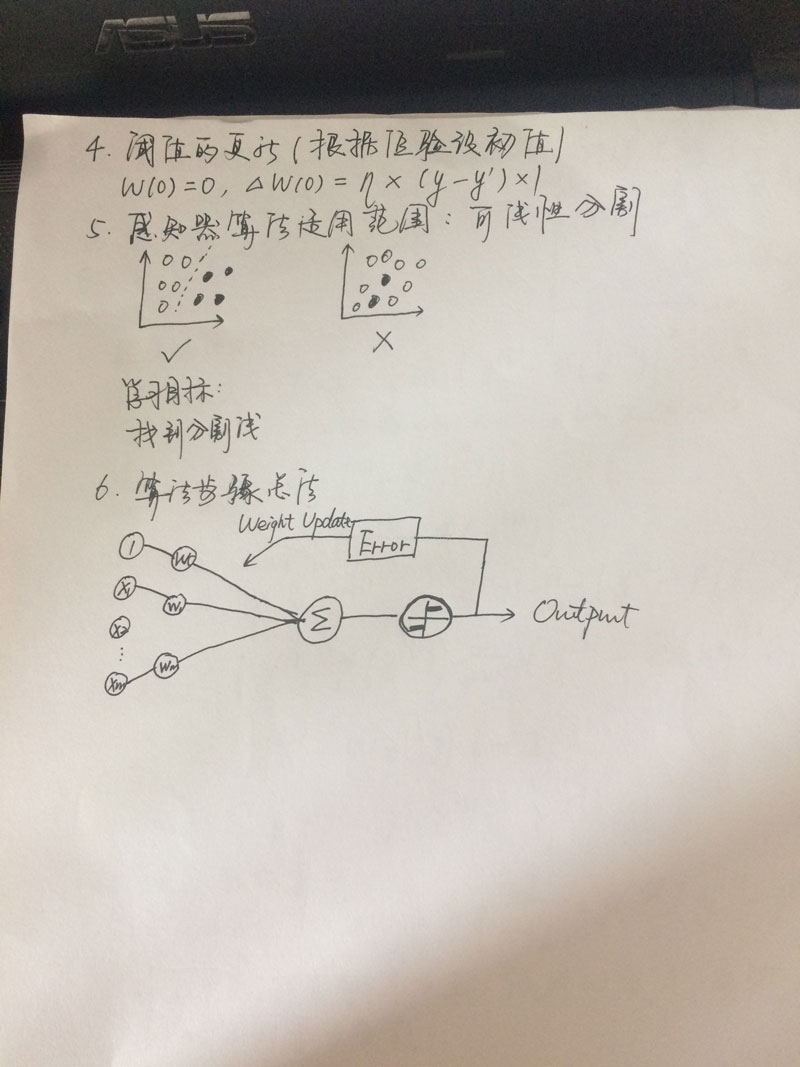 ASUS
4. 阈值的更新(根据经验设初值)
W(0)=0, △W(0)=η×(y-y')×1
5. 感知器算法适用范围：可线性分割
✓ ×
学习目标：
找到分割线
6. 算法步骤总结
Weight Update
Error
1
X1
W1
X2
⋮
Xm
Wm
Σ
Output